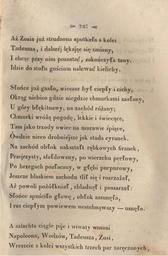 — 247 —
Aż Zosia już strudzona spotkała z kolei
Tadeusza, i dalszéj lękając się zmiany,
I chcąc przy nim pozostać, zakończyła tany.
Idzie do stołu gościom nalewać kielichy.

Słońce już gasło, wieczor był ciepły i cichy,
Okrąg niebios gdzie niegdzie chmurkami zasłany,
U góry błękitnawy, na zachód różany;
Chmurki wróżą pogodę, lekkie i świecące,
Tam jako trzody owiec na murawie śpiące,
Ówdzie nieco drobniejsze jak stada cyranek.
Na zachód obłok nakształt rąbkowych firanek,
Przejrzysty, sfałdowany, po wierzchu perłowy,
Po brzegach pozłacany, w głębi purpurowy,
Jeszcze blaskiem zachodu tlił się i rozżarzał,
Aż powoli pożółkniał, zbladnął i poszarzał:
Słońce spuściło głowę, obłok zasunęło,
I raz ciepłym powiewem westchnąwszy — usnęło.

A szlachta ciągle pije i wiwaty wznosi
Napoleona, Wodzów, Tadeusza, Zosi,
Wreszcie z kolei wszystkich trzech par zaręczonych,